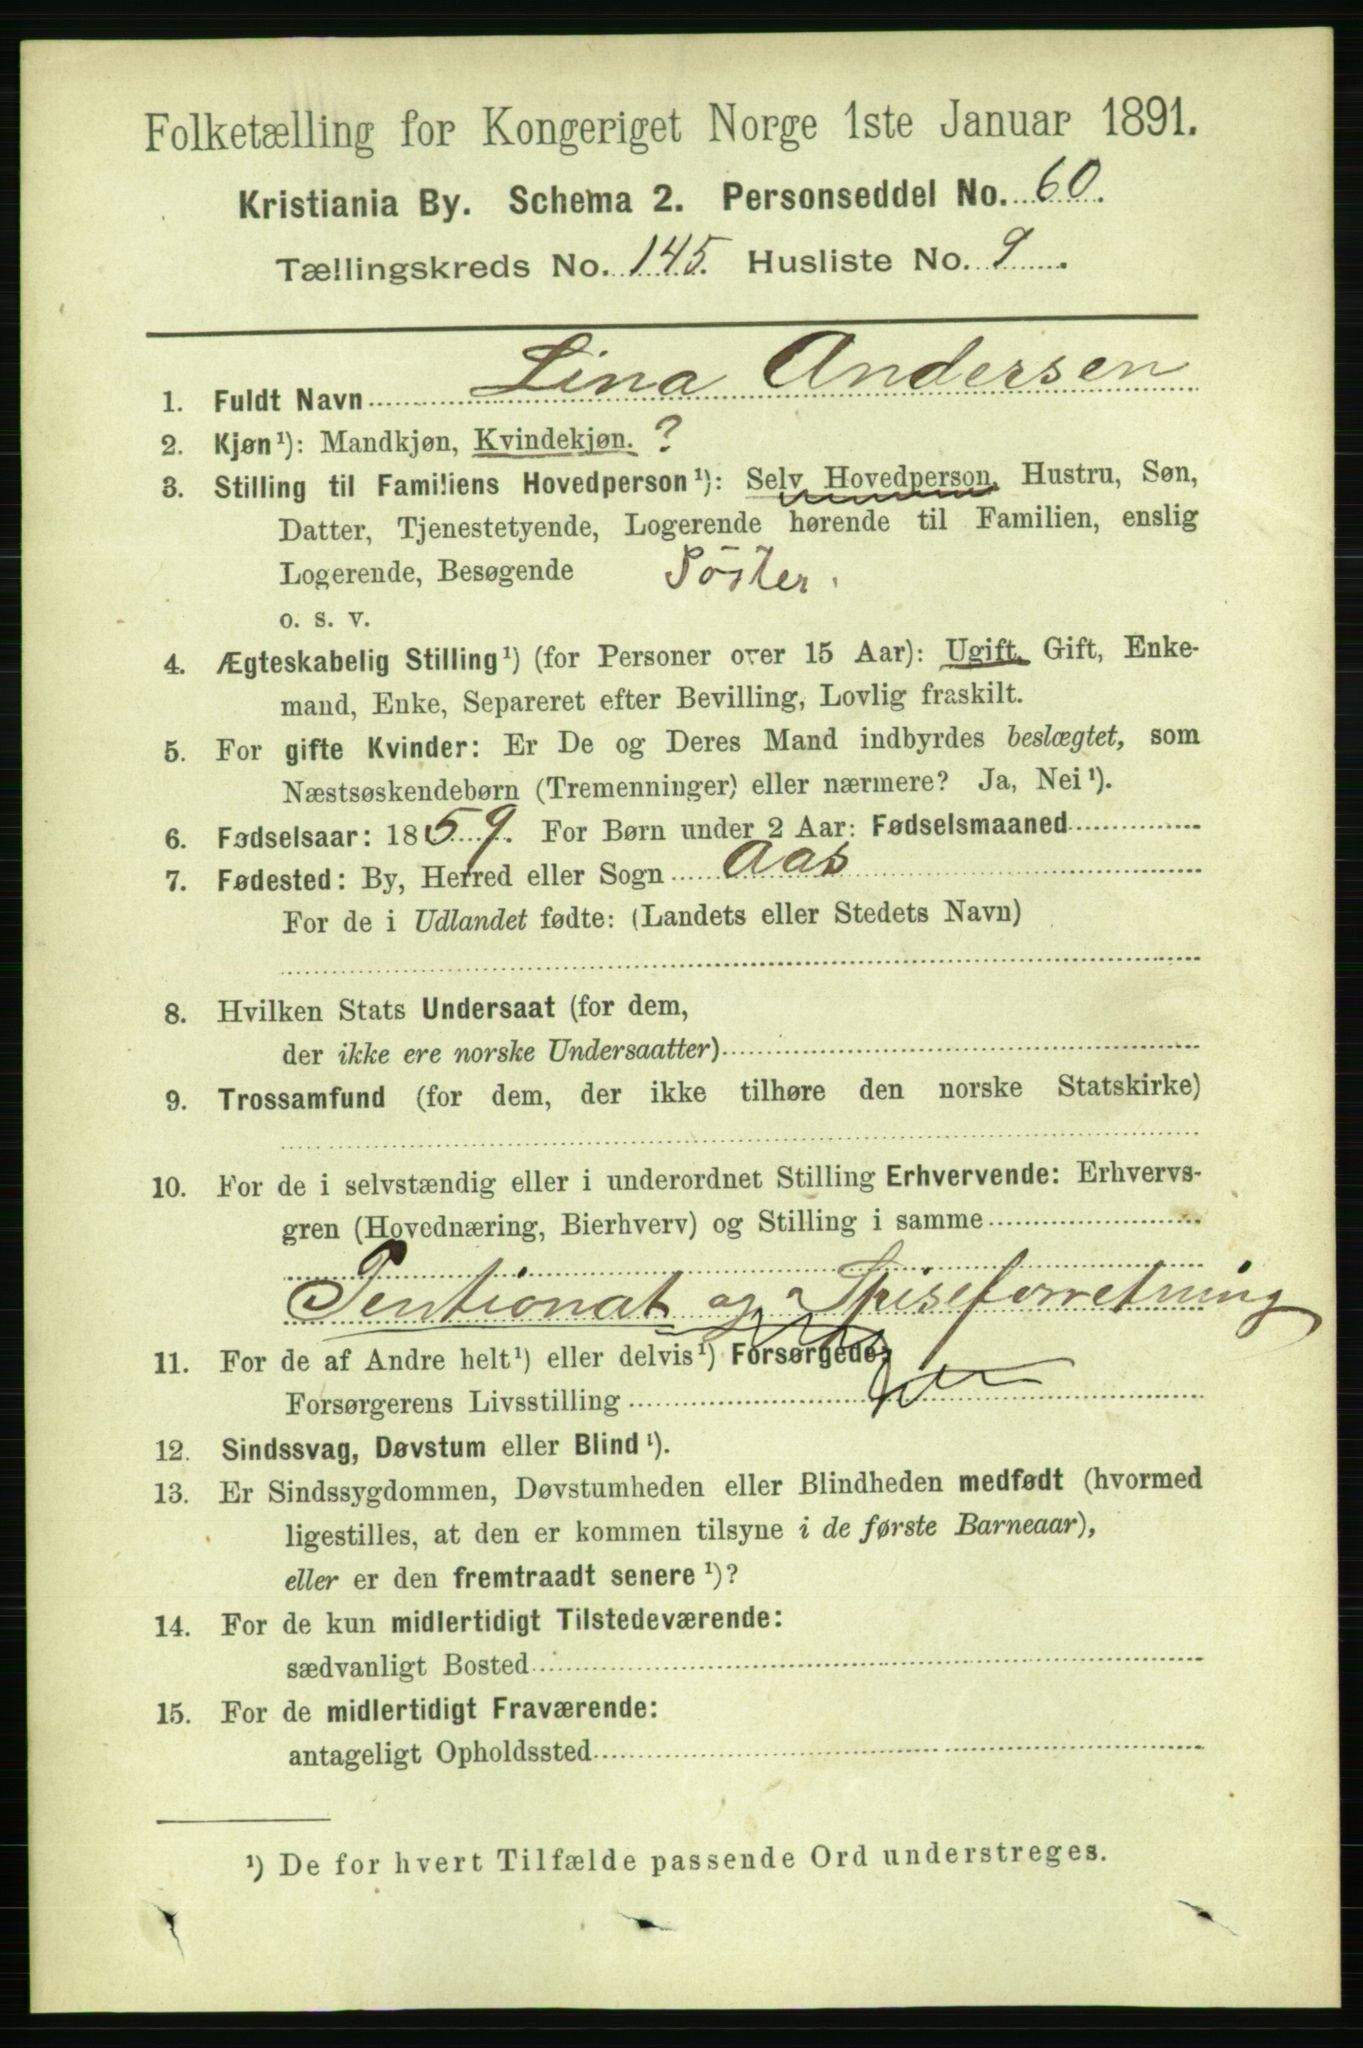 Folketælling for Kongeriget Norge 1ste Januar 1891.
Kristiania By. Schema 2. Personseddel No. 60.
Tællingskreds No. 145. Husliste No. 9.
1. Fuldt Navn Lina Andersen
2. Kjøn¹): Mandkjøn, Kvindekjøn. ?
3. Stilling til Familiens Hovedperson¹): Selv Hovedperson, Hustru, Søn,
Datter, Tjenestetyende, Logerende hørende til Familien, enslig
Logerende, Besøgende Söster.
o. s. v.
4. Ægteskabelig Stilling¹) (for Personer over 15 Aar): Ugift, Gift, Enke-
mand, Enke, Separeret efter Bevilling, Lovlig fraskilt.
5. For gifte Kvinder: Er De og Deres Mand indbyrdes beslægtet, som
Næstsøskendebørn (Tremenninger) eller nærmere? Ja, Nei¹).
6. Fødselsaar: 1859. For Børn under 2 Aar: Fødselsmaaned
7. Fødested: By, Herred eller Sogn Aas
For de i Udlandet fødte: (Landets eller Stedets Navn)
8. Hvilken Stats Undersaat (for dem,
der ikke ere norske Undersaatter)
9. Trossamfund (for dem, der ikke tilhøre den norske Statskirke)
10. For de i selvstændig eller i underordnet Stilling Erhvervende: Erhvervs-
gren (Hovednæring, Bierhverv) og Stilling i samme
Pentionat og Spiseforretning
11. For de af Andre helt¹) eller delvis¹) Forsørgede,
Forsørgerens Livsstilling
12. Sindssvag, Døvstum eller Blind¹).
13. Er Sindssygdommen, Døvstumheden eller Blindheden medfødt (hvormed
ligestilles, at den er kommen tilsyne i de første Barneaar),
eller er den fremtraadt senere¹)?
14. For de kun midlertidigt Tilstedeværende:
sædvanligt Bosted
15. For de midlertidigt Fraværende:
antageligt Opholdssted
¹) De for hvert Tilfælde passende Ord understreges.